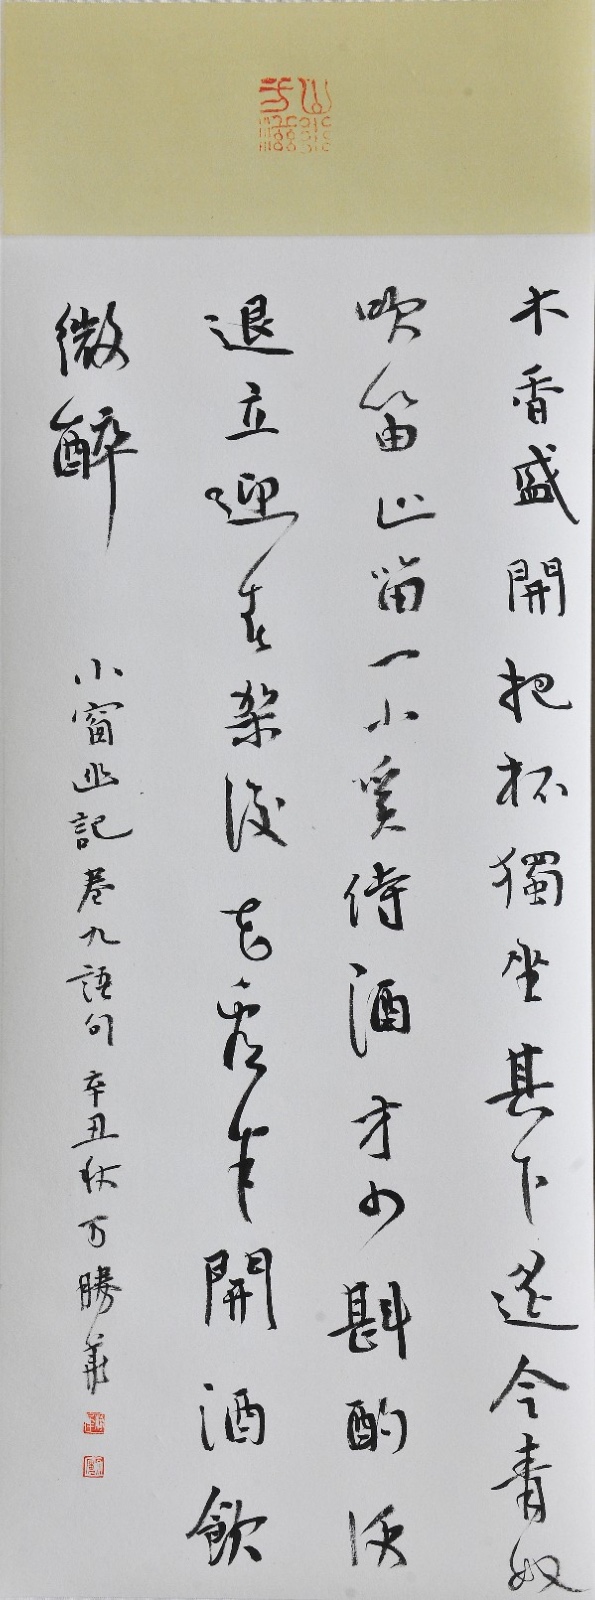 木香盛開把杯獨坐其下遙令青奴
吹笛止留一小奚侍酒才少斟酌便
退立迎春架後花看半開酒飲
微醉
小窗幽記卷九語句辛丑秋万勝華